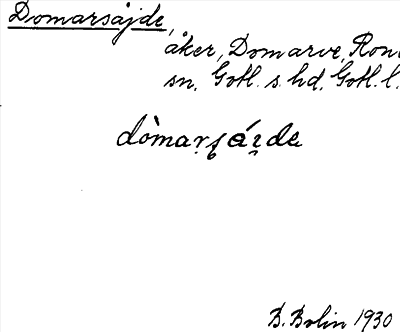 Domarsåjde,
åker, Domarve, Rone
sn. Gotl. s. hd. Gotl. l.
dòmaṛʂáɪ̯da
B. Bolin 1930